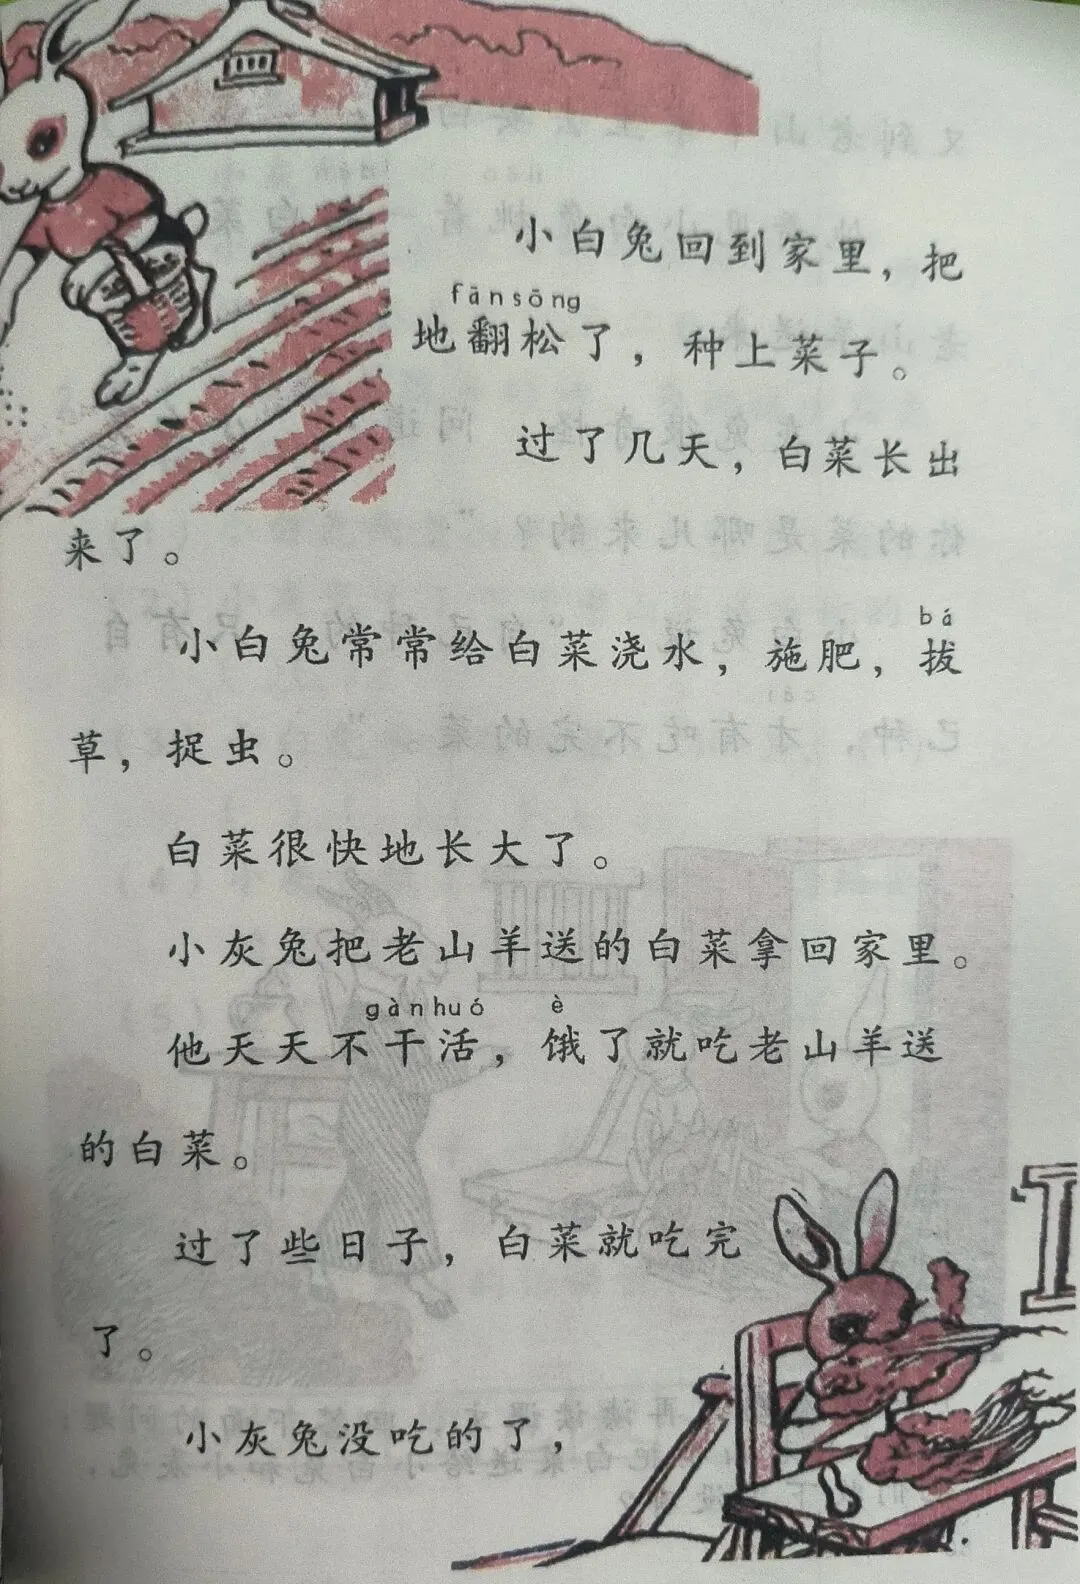 小白兔回到家里，把
fānsōng
地翻松了，种上菜子。
过了几天，白菜长出
来了。
bá
小白兔常常给白菜浇水，施肥，拔
草，捉虫。
白菜很快地长大了。
小灰兔把老山羊送的白菜拿回家里。
gànhuó è
他天天不干活，饿了就吃老山羊送
的白菜。
过了些日子，白菜就吃完
了。
小灰兔没吃的了，